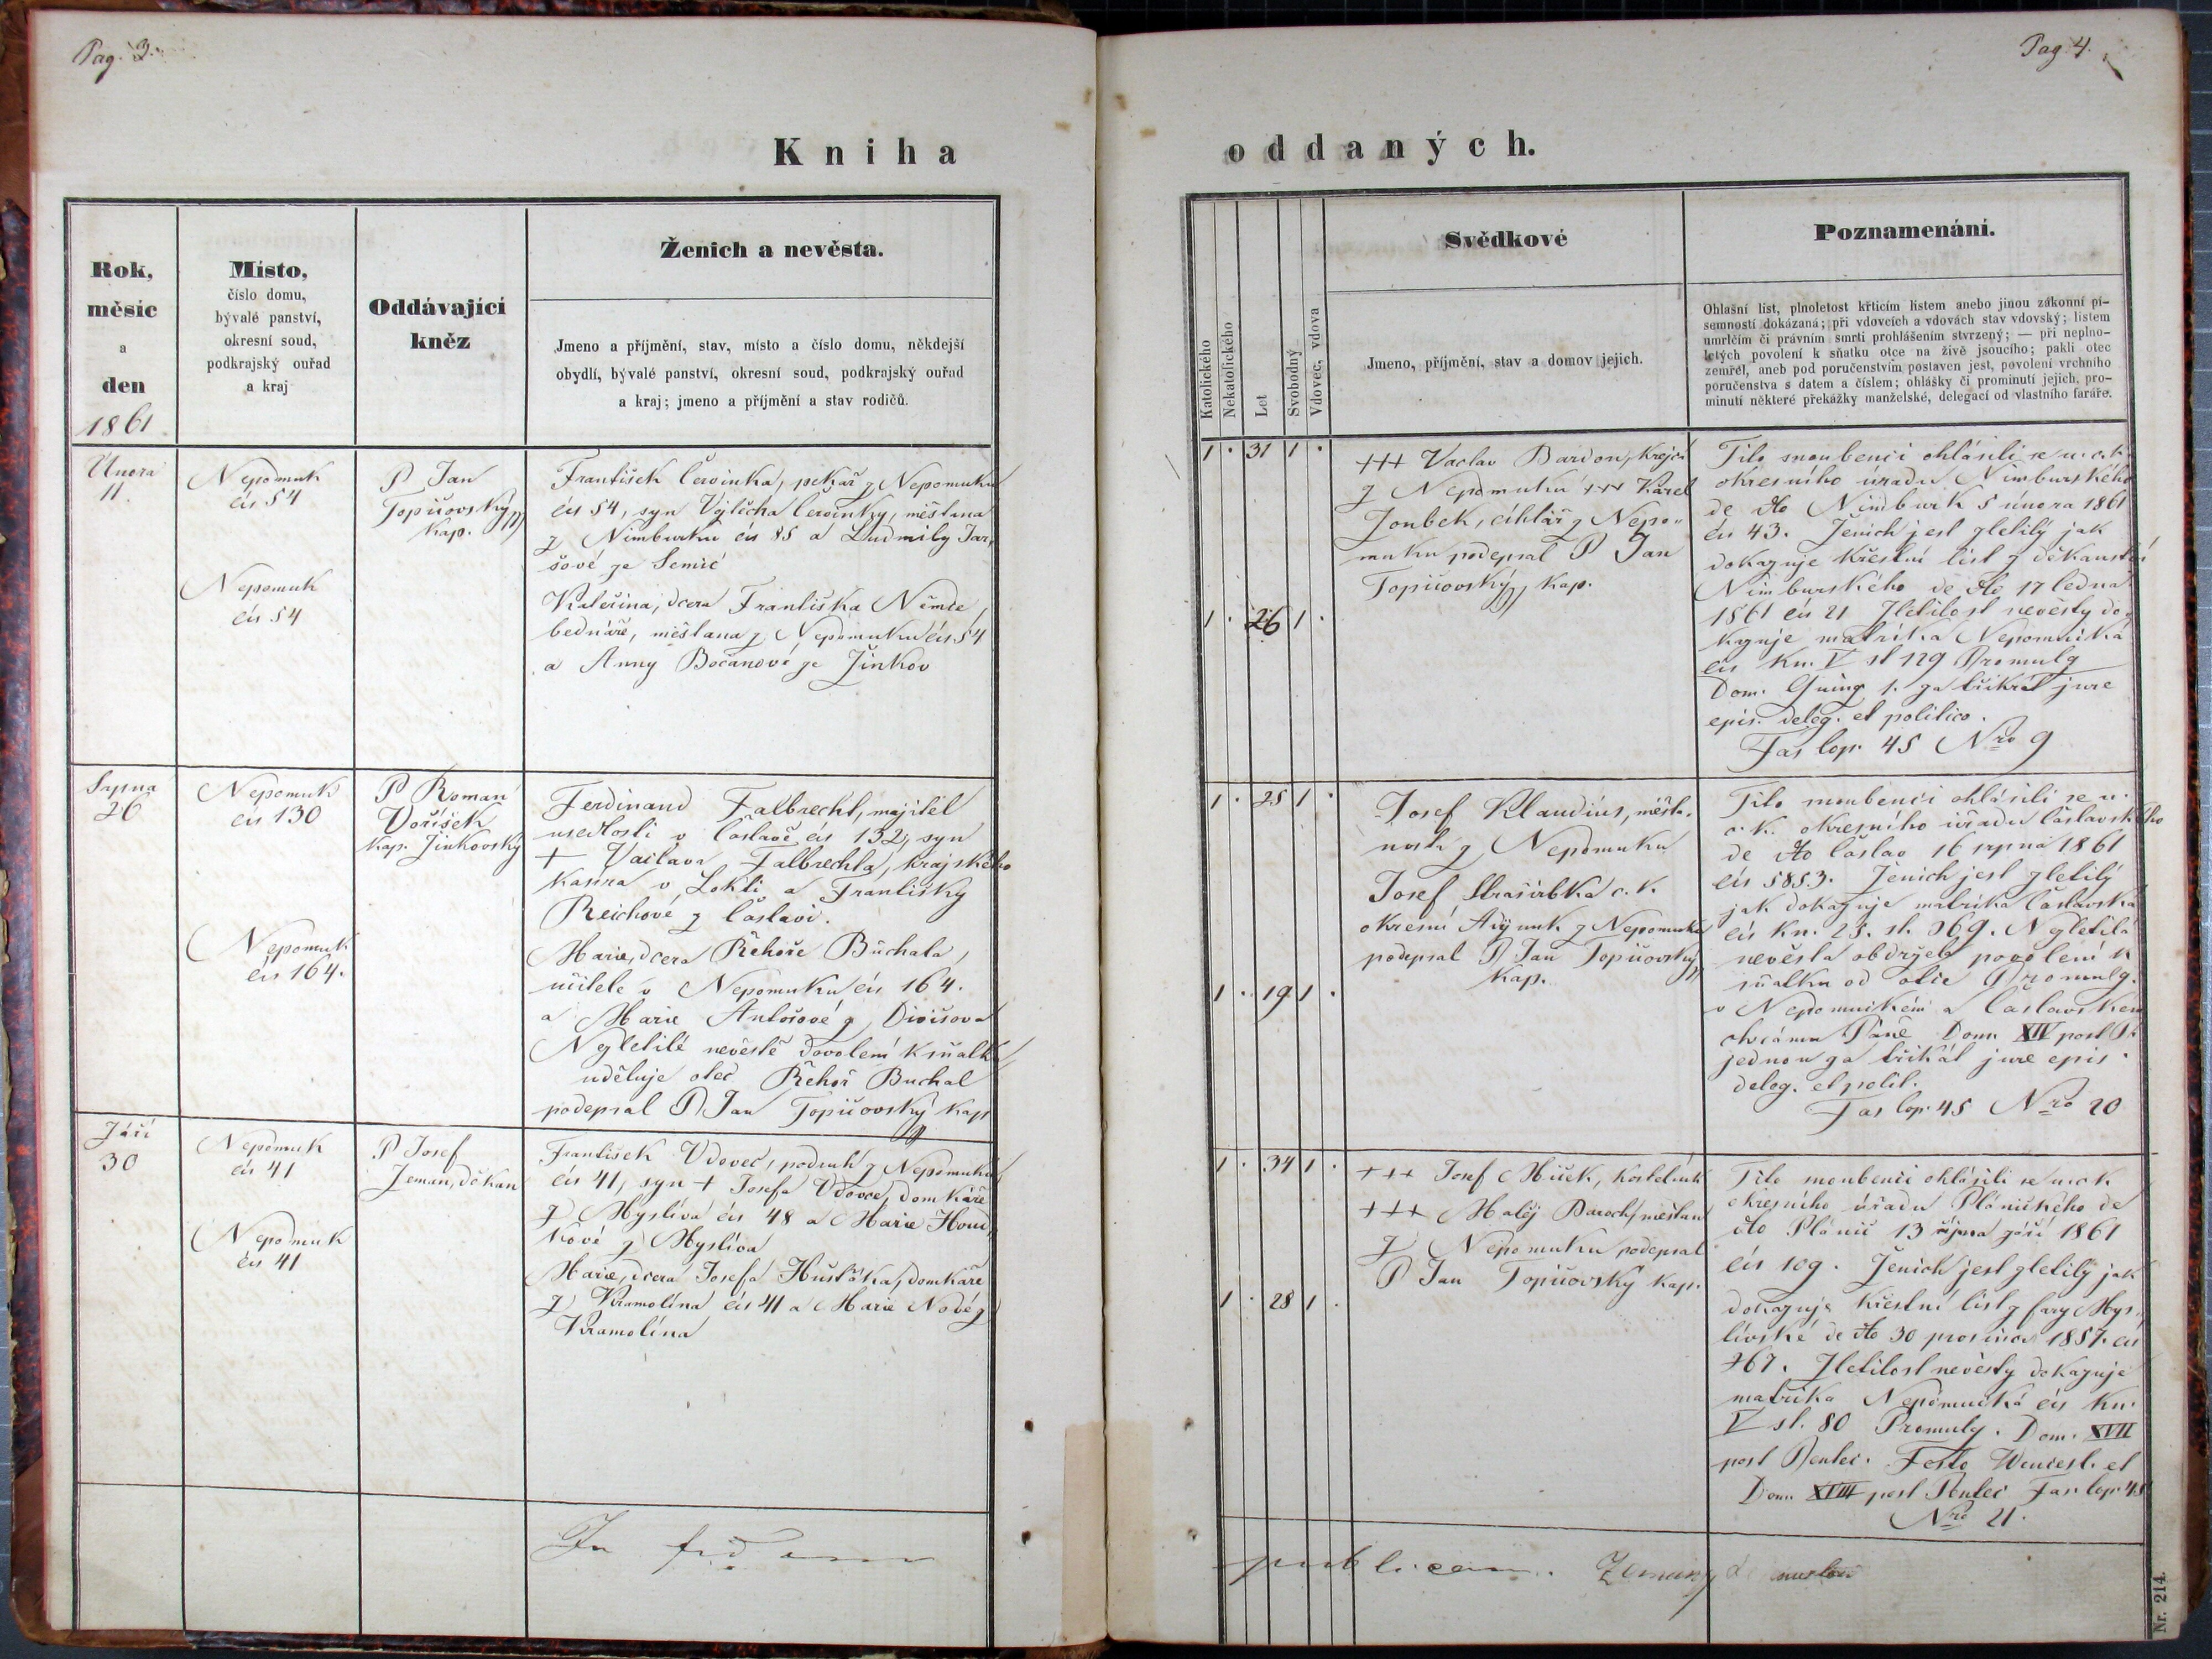 Pag. 3.
Kniha
Rok,
měsíc
a
den
1861
Místo,
číslo domu,
bývalé panství,
okresní soud,
podkrajský ouřad
a kraj
Oddávající
kněz
Ženich a nevěsta.
Jmeno a příjmění, stav, místo a číslo domu, někdejší
obydlí, bývalé panství, okresní soud, podkrajský ouřad
a kraj; jmeno a příjmění a stav rodičů.
Února
11.
Nepomuk
čís 54
Nepomuk
čís 54
P Jan
Topičovský
Kap.
František Červinka, pekař z Nepomuku
čís 54, syn Vojtěcha Červinky, měštana
z Nimburku čís 85 a Ludmily Jar
šové ze Semic
Kateřina, dcera Františka Němce,
bednáře, měštana z Nepomuku čís 54
a Anny Bočanové ze Žinkov
Srpna
26
Nepomuk
čís 130
Nepomuk
čís 164.
P Roman
Voříšek
Kap. Žinkovský
Ferdinand Falbrecht, majitel
usedlosti v Čáslavě čís 132, syn
+ Václava Falbrechta, krajského
kasíra v Lokti a Františky
Reichové z Čáslavi.
Marie, dcera Řehoře Buchala,
učitele v Nepomuku čís 164.
a Marie Antošové z Divišova
Nezletilé nevěstě dovolení k sňatku
uděluje otec Řehoř Buchal
podepsal P Jan Topičovský Kap
Září
30
Nepomuk
čís 41
Nepomuk
čís 41
P Josef
Zeman, děkan
František Vdovec, podruh z Nepomuku
čís 41, syn + Josefa Vdovce, domkáře
z Myslíva čís 48 a Marie Houd
kové z Myslíva
Marie, dcera Josefa Hušťáka, domkáře
z Kramolína čís 41 a Marie Nové z
Kramolína
In fidem
Pag. 4.
oddaných.
Katolického
Nekatolického
Let
Svobodný
Vdovec, vdova
Svědkové
Jmeno, příjmění, stav a domov jejich.
Poznamenání.
Ohlašní list, plnoletost křticím listem anebo jinou zákonní pí-
semností dokázaná; při vdovcích a vdovách stav vdovský; listem
umrlčím či právním smrti prohlášením stvrzený; — při neplno-
letých povolení k sňatku otce na živě jsoucího; pakli otec
zemřel, aneb pod poručenstvím postaven jest, povolení vrchního
poručenstva s datem a číslem; ohlášky či prominutí jejich, pro-
minutí některé překážky manželské, delegací od vlastního faráře.
1 . 31 1 .
1 . 26 1 .
+++ Václav Bardon, krejčí
z Nepomuku +++ Karel
Joubek, cihlář z Nepo
muku podepsal P Jan
Topičovský, Kap.
Tito snoubenci ohlásili se u c. k.
okresního úřadu Nimburského
de dto Nimburk 5 února 1861
čís 43. Ženich jest zletilý jak
dokazuje křestní list z děkanství
Nimburského de dto 17 ledna
1861 čís 21 Zletilost nevěsty do
kazuje matrika Nepomucká
čís Kn. V st 129 Promulg
Dom. Quinq 1. za třikrát jure
epis. deleg. et politico.
Fas cop. 45 Nro 9
1 . 25 1 .
1 . 19 1 .
Josef Klaudius, měšťa
nosta z Nepomuku
Josef c. k.
okresní Adjunk z Nepomuku
podepsal P Jan Topičovský
Kap.
Tito snoubenci ohlásili se u
c. k. okresního úřadu Čáslavského
de dto Čáslav 16 srpna 1861
čís 5853. Ženich jest zletilý
jak dokazuje matrika Čáslavská
čís Kn. 23. st. 269. Nezletilá
nevěsta obdržela povolení k
sňatku od otce Promulg.
v Nepomuckém a Čáslavském
chrámu Páně Dom. XIV post P.
jednou za třikrát jure epis
deleg. et polit.
Fas cop. 45 Nro 20
1 . 34 1 .
1 . 28 1 .
+++ Josef Míček, kostelník
+++ Matěj Baroch, měštan
z Nepomuku podepsal
P Jan Topičovský Kap.
Tito snoubenci ohlásili se u c. k.
okresního úřadu Plánického de
dto Plánic 13 září 1861
čís 109. Ženich jest zletilý jak
dokazuje křestní list z fary Mys
lívské de dto 30 prosince 1857. čís
267. Zletilost nevěsty dokazuje
matrika Nepomucká čís Kn.
V st. 80 Promulg. Dom. XVII
post Pentec. Festo Wencesl. et
Dom. XVIII post Pentec Fas cop. 45
Nro 21.
publicam. Zeman
Nr. 214.